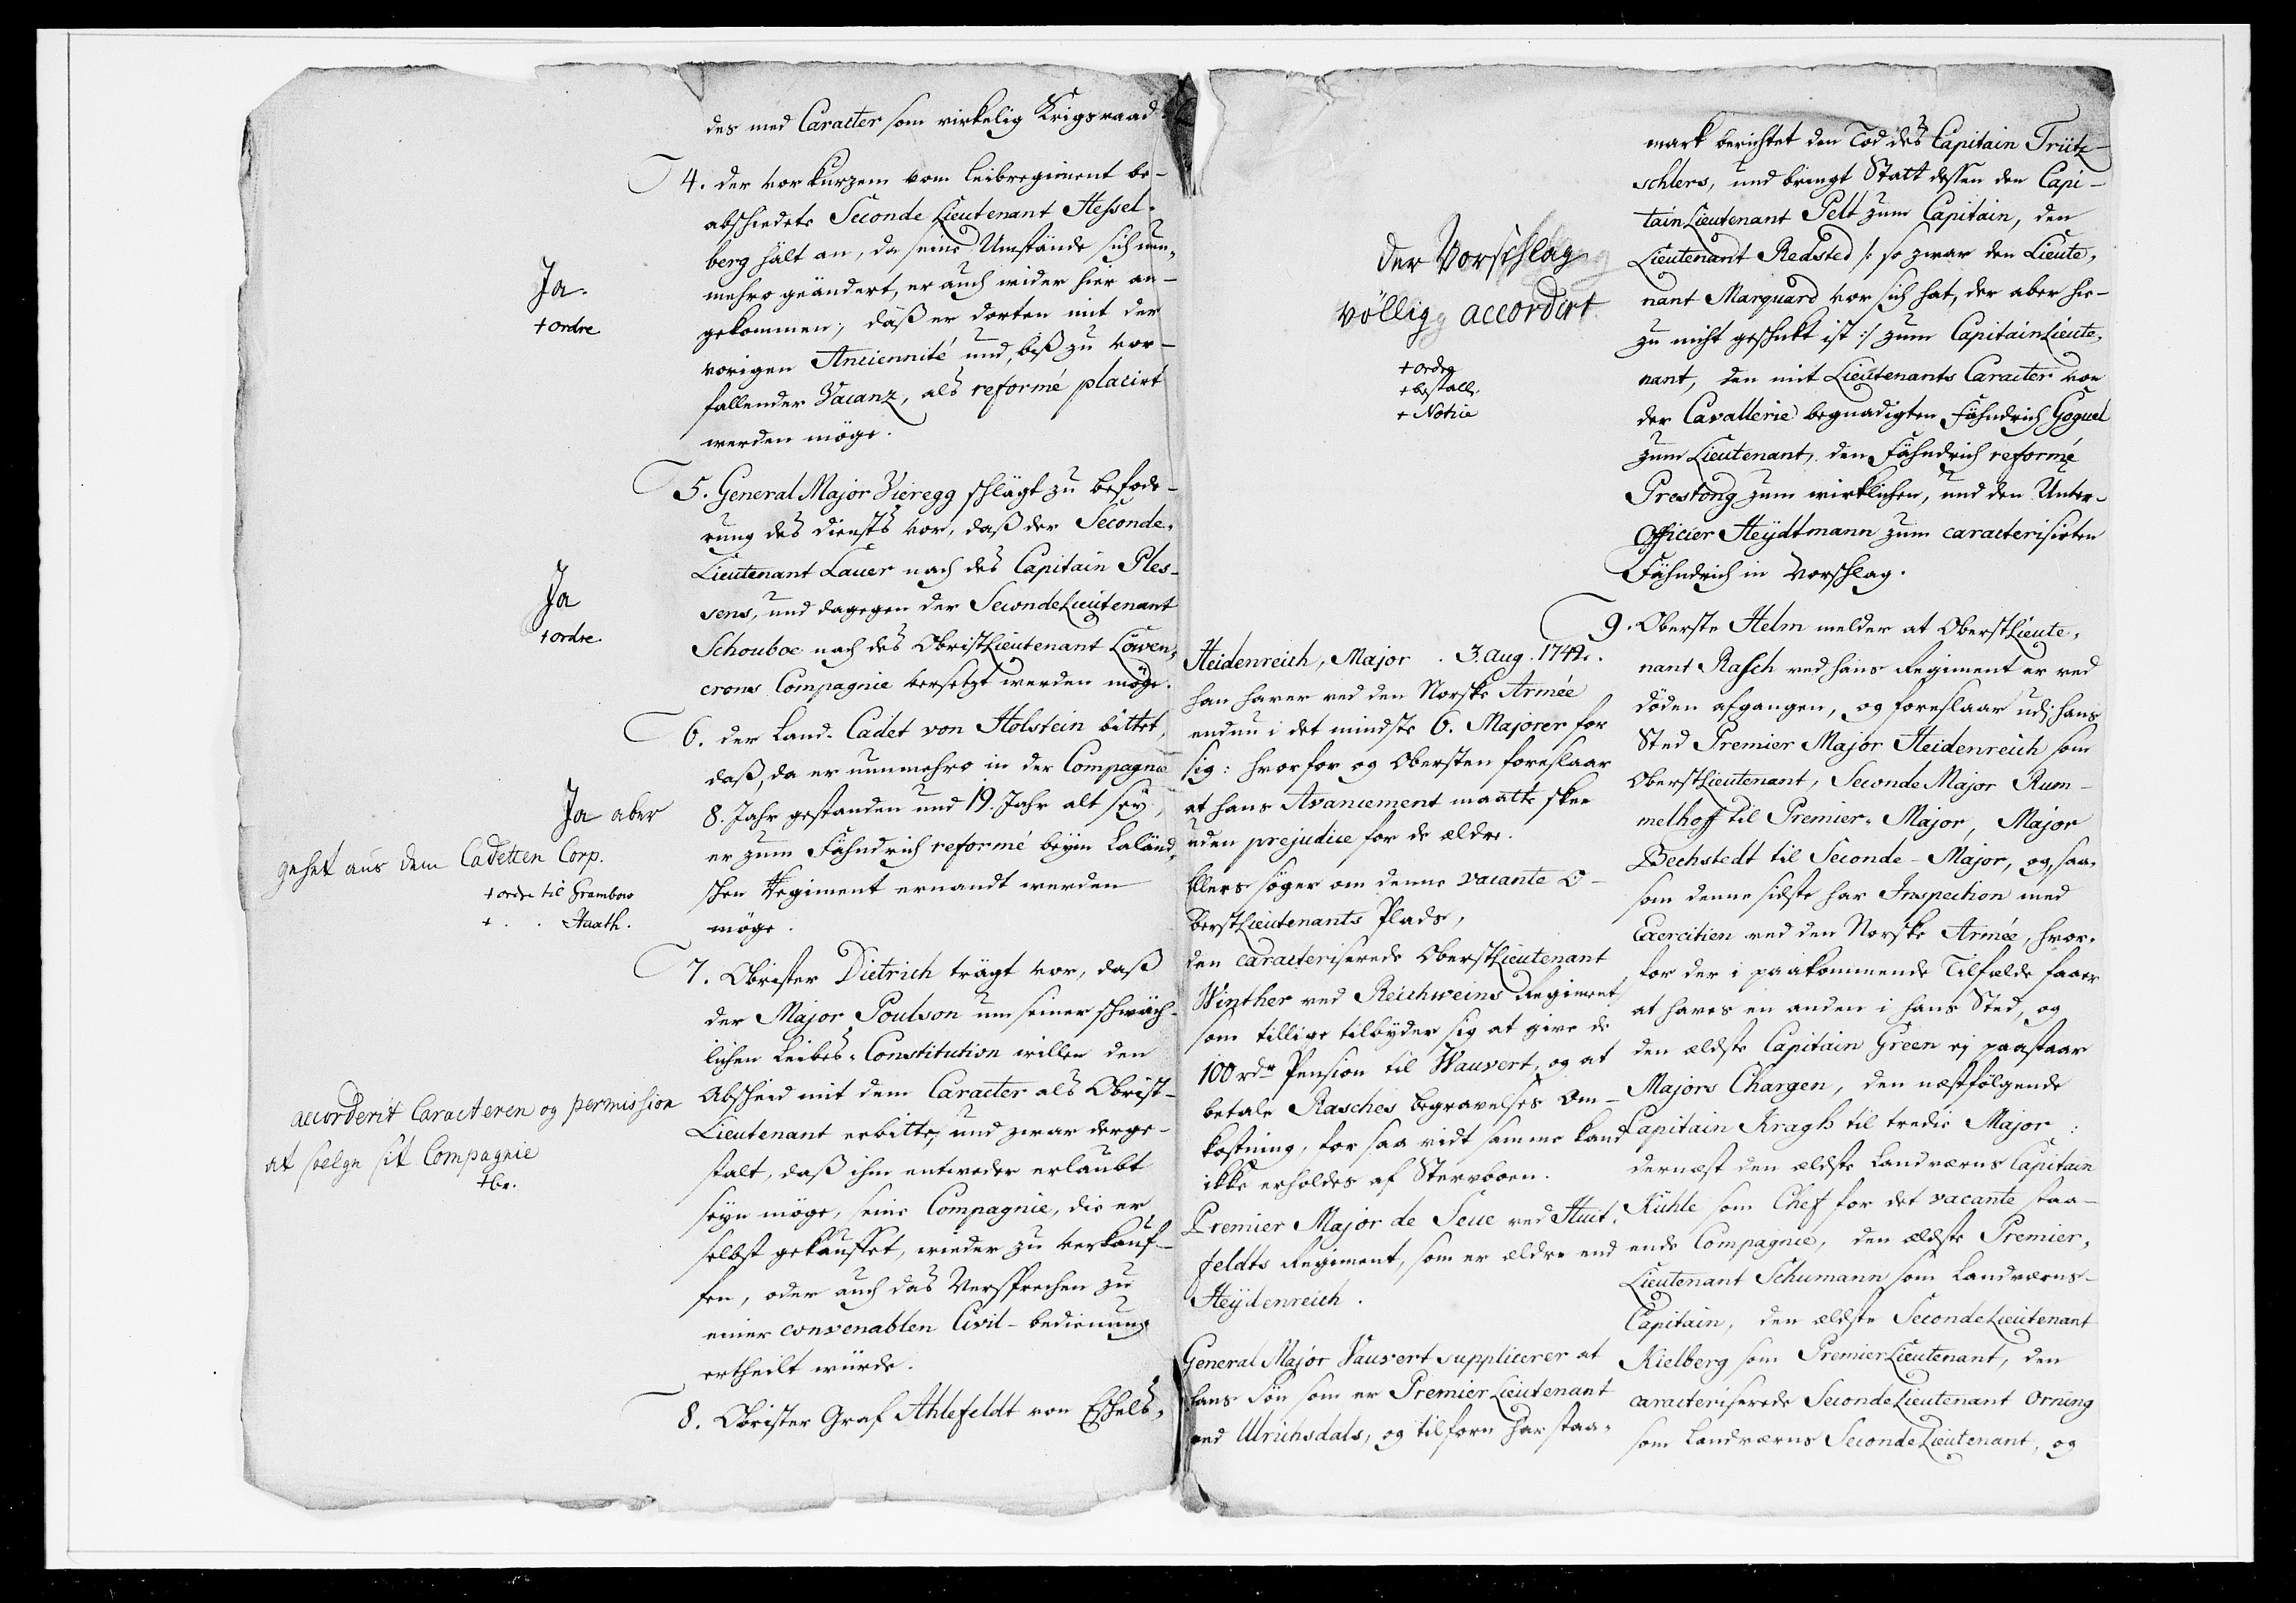 des med Caracter som virkelig Krigsraad.
4. der vor kurzem vom Leibregiment be-
abschiedete Seconde Lieutenant Hessel-
berg hält an, da seine Umstände sich nun-
mehro geändert, er auch wider hier an-
gekommen, daß er dorten mit der
vorigen Anciennité und, biß zu vor-
fallender Vacanz, als reformé placirt
werden möge.
Ja.
+ ordre
5. General Major Vieregg schlägt zu befode-
rung des Diensts vor, daß der Seconde-
Lieutenant Lauer nach des Capitain Ples-
sens, und dagegen der Seconde Lieutenant
Schouboe nach des ObristLieutenant Löwen-
crons Compagnie versetzt werden möge.
Ja
+ ordre.
6. der Land-Cadet von Holstein bittet,
daß, da er nunmehro in der Compagnie
8. Jahr gestanden und 19. Jahr alt sey,
er zum Fähndrich reformé beym Laländ-
schen Regiment ernandt werden
möge.
Ja aber
gehet aus dem Cadetten Corp.
+ ordre til Frambow
+ . . Staath.
7. Obrister Dietrich trägt vor, daß
der Major Poulson um seiner schwäch-
lichen Leibes-Constitution willen den
Abscheid mit dem Caracter als Obrist-
Lieutenant erbitte, und zwar derge-
stalt, daß ihm entweder erlaubt
seyn möge, seine Compagnie, die er
selbst gekauffet, wieder zu verkauf-
fen, oder auch das Versprechen zu
einer convenablen Civil-bedienung
ertheilt würde.
accorderit Caracteren og permission
at selge sit Compagnie
+ br.
8. Obrister Graf Ahlefeldt von Eschels-
mark berichtet den Tod des Capitain Trütz-
schlers, und bringt Statt dessen den Capi-
tainLieutenant Pelt zum Capitain, den
Lieutenant Redsted /: so zwar den Lieute-
nant Marquard vor sich hat, der aber hie-
zu nicht geschikt ist :/ zum CapitainLieute-
nant, den mit Lieutenants Caracter von
der Cavallerie begnadigten Fähndrich Goguel
zum Lieutenant, den Fähndrich reformé
Prestong zum wirklichen, und den Unter-
Officier Heydtmann zum caracterisirten
Fähndrich in Vorschlag.
der Vorschlag
völlig accordirt
+ ordre
+ bestall.
+ Notice
9. Oberste Helm melder at OberstLieute-
nant Rasch ved hans Regiment er ved
döden afgangen, og foreslaar udi hans
Sted Premier Major Heidenreich som
OberstLieutenant, Seconde Major Rum-
melhoff til Premier-Major, Major
Bechstedt til Seconde-Major, og, saa-
som denne sidste har Inspection med
Exercitien ved den Norske Armée, hvor-
for der i paakommende Tilfælde faaer
at haves en anden i hans Sted, og
den ældste Capitain Green ej paastaar
Majors Chargen, den næstfölgende
Capitain Kragh til tredie Major:
dernæst den ældste Landværns Capitain
Kühle som Chef for det vacante staa-
ende Compagnie, den ældste Premier-
Lieutenant Schumann som Landværns-
Capitain, den ældste SecondeLieutenant
Kielberg som PremierLieutenant, den
caracteriserede SecondeLieutenant Orning
som Landværns SecondeLieutenant, og
Heidenreich, Major . 3. Aug. 1742.
han haver ved den Norske Armée
endnu i det mindste 6. Majorer for
sig: hvorfor og Obersten foreslaar
at hans Avancement maatte skee
uden prejudice for de ældre.
Ellers söger om denne vacante O-
berstLieutenants Plads,
den caracteriserede OberstLieutenant
Winther ved Reichweins Regiment,
som tillige tilbyder sig at give de
100 rdr Pension til Vauvert, og at
betale Rasches begravelses Om-
kostning, for saa vidt samme kand
ikke erholdes af Stervboen.
Premier Major de Seue ved Huit-
feldts Regiment, som er ældre end
Heydenreich.
General Major Vauvert supplicerer at
hans Sön som er PremierLieutenant
ved Ulrichsdals, og tilforn har staa-